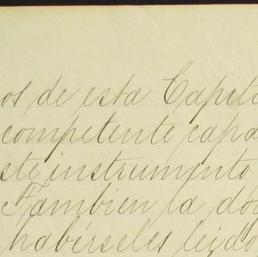 os de esta Capita
competente capa
ste instrumento
Tambien la doc
habérseles leido